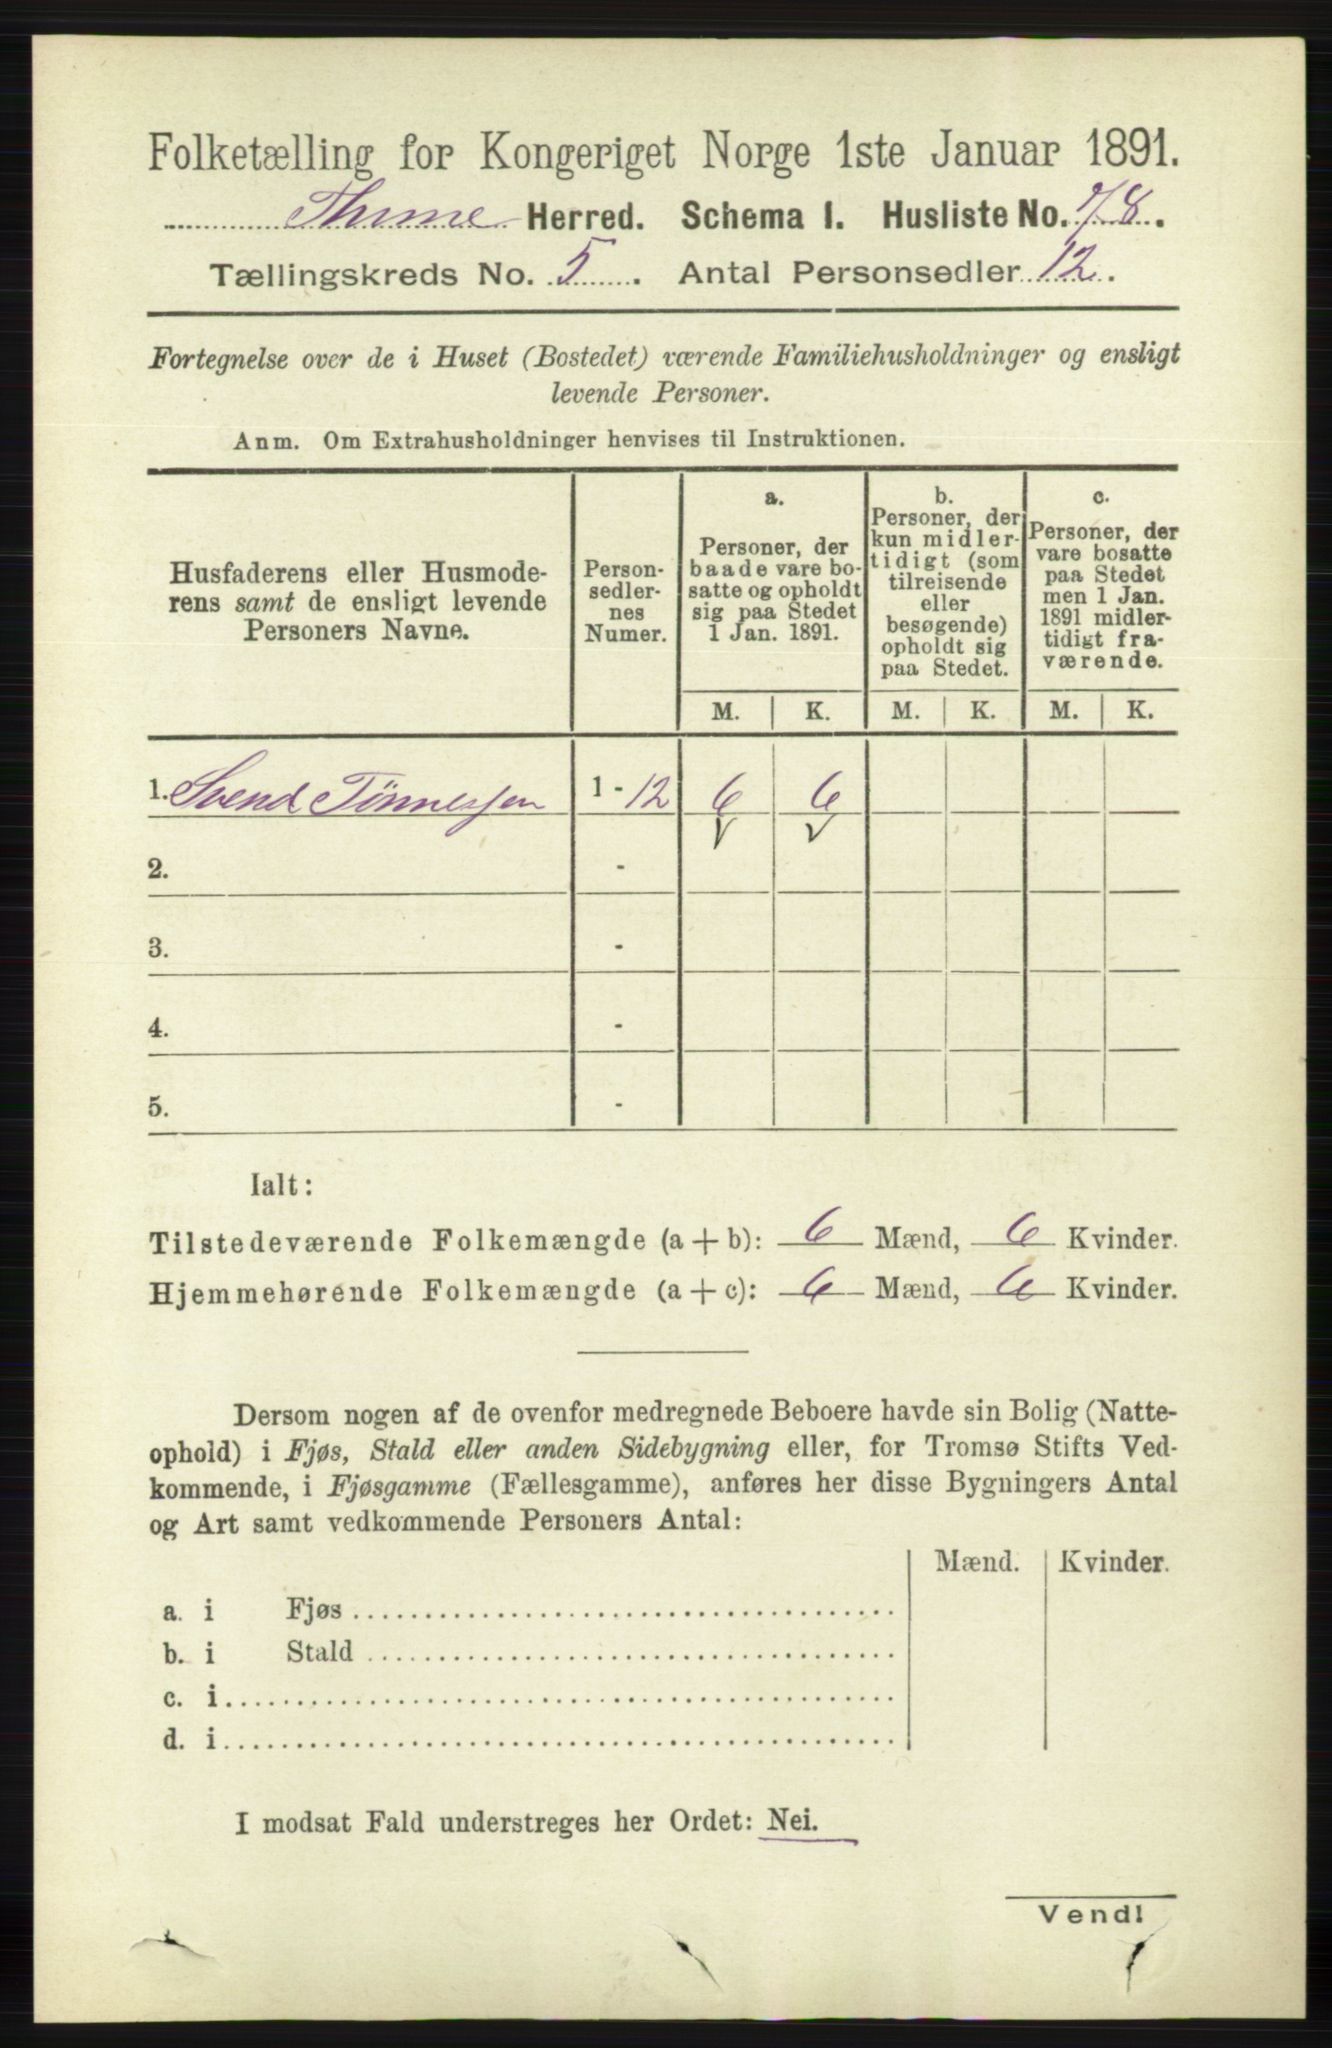 Folketælling for Kongeriget Norge 1ste Januar 1891.
Thime Herred. Schema I. Husliste No. 78.
Tællingskreds No. 5. Antal Personsedler 12.
Fortegnelse over de i Huset (Bostedet) værende Familiehusholdninger og ensligt
levende Personer.
Anm. Om Extrahusholdninger henvises til Instruktionen.
Husfaderens eller Husmode-
rens samt de ensligt levende
Personers Navne.
Person-
sedler-
nes
Numer.
a.
Personer, der
baade vare bo-
satte og opholdt
sig paa Stedet
1 Jan. 1891.
b.
Personer, der
kun midler-
tidigt (som
tilreisende
eller
besøgende)
opholdt sig
paa Stedet.
c.
Personer, der
vare bosatte
paa Stedet
men 1 Jan.
1891 midler-
tidigt fra-
værende.
M. K. M. K. M. K.
1. Svend Tönnessen 1 - 12 6 6
2. -
3. -
4. -
5. -
Ialt:
Tilstedeværende Folkemængde (a + b): 6 Mænd, 6 Kvinder.
Hjemmehørende Folkemængde (a + c): 6 Mænd, 6 Kvinder.
Dersom nogen af de ovenfor medregnede Beboere havde sin Bolig (Natte-
ophold) i Fjøs, Stald eller anden Sidebygning eller, for Tromsø Stifts Ved-
kommende, i Fjøsgamme (Fællesgamme), anføres her disse Bygningers Antal
og Art samt vedkommende Personers Antal:
Mænd. Kvinder.
a. i Fjøs
b. i Stald
c. i
d. i
I modsat Fald understreges her Ordet: Nei.
Vend!